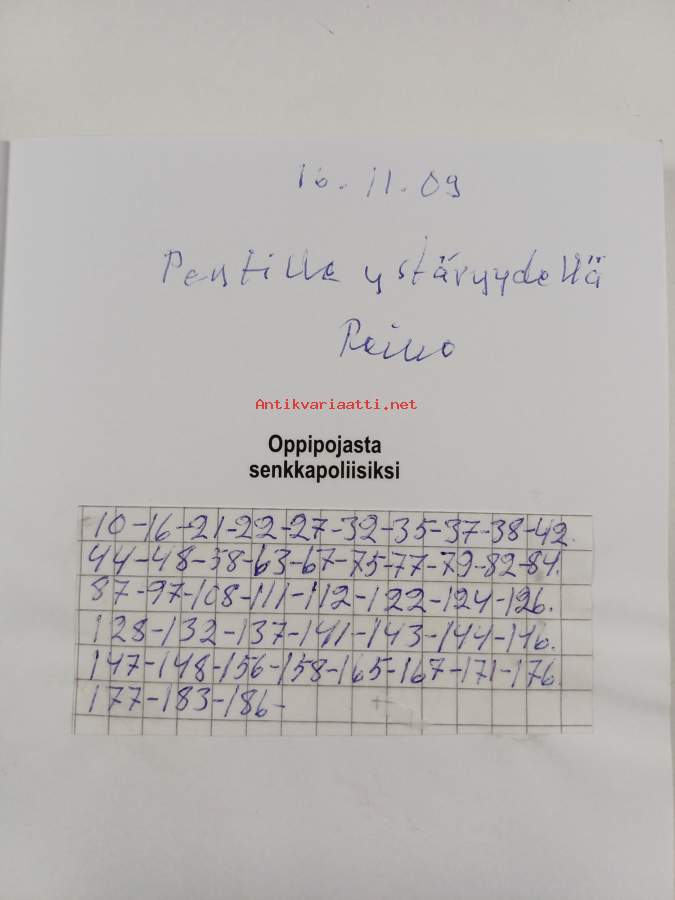 16.11.09
Pentille ystävyydellä
Reino
Antikvariaatti.net
Oppipojasta
senkkapoliisiksi
10-16-21-22-27-32-35-37-38-42.
44-48-58-63-67-75-77-79-82-84.
87-97-108-111-112-122-124-126.
128-132-137-141-143-144-146.
147-148-156-158-165-167-171-176.
177-183-186-